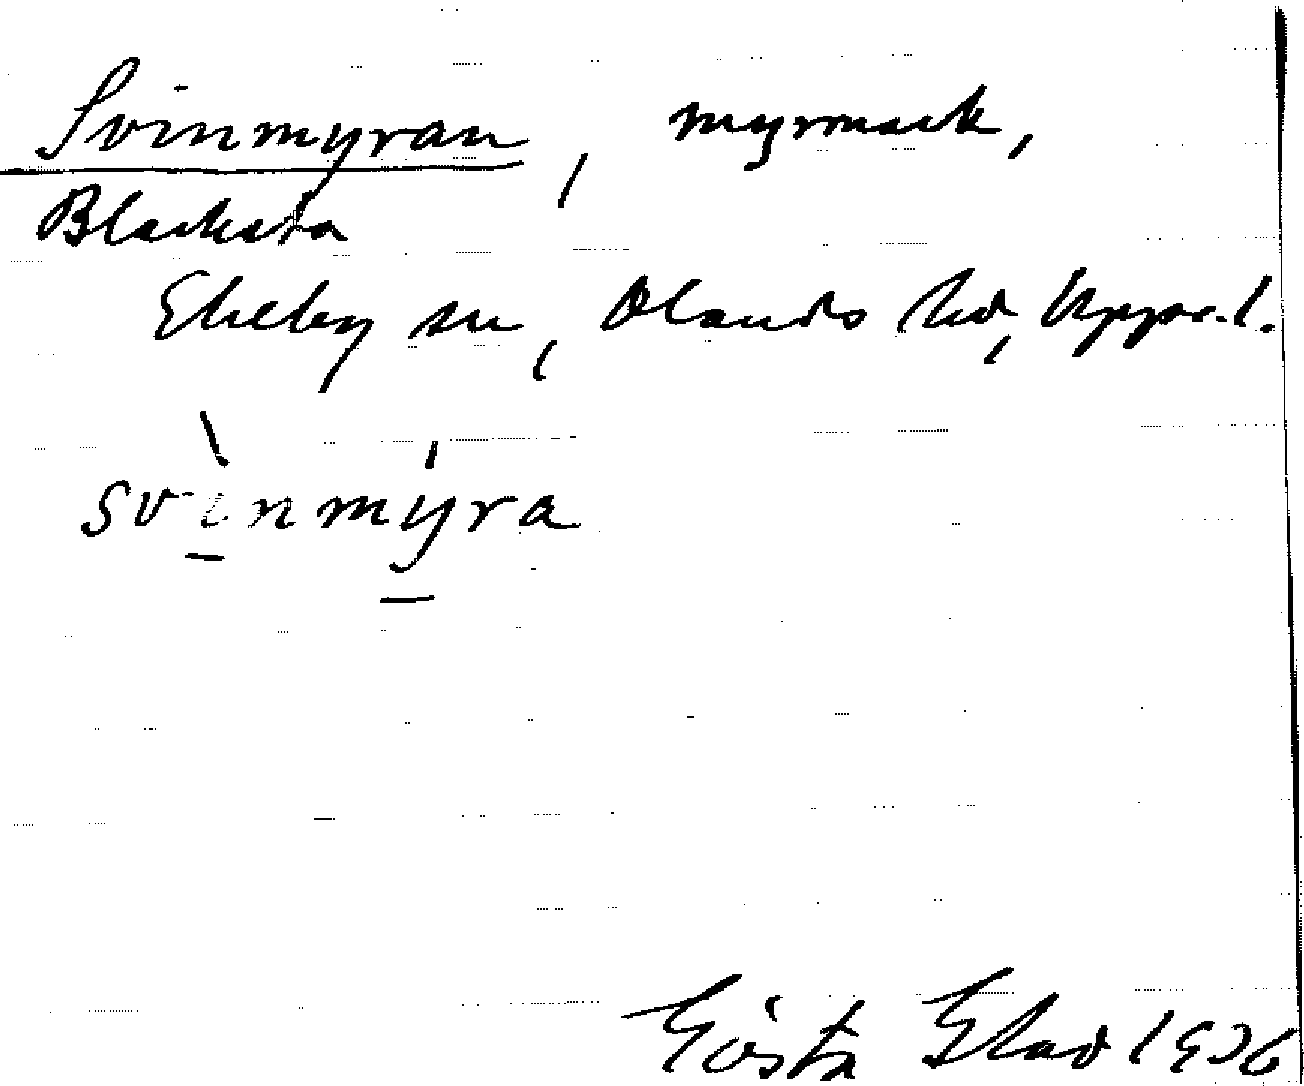 Svinmyran, myrmark,
Blacksta
Ekeby sn, Olands hd, Uppsl.
svìnmýra
Gösta Elad 1936